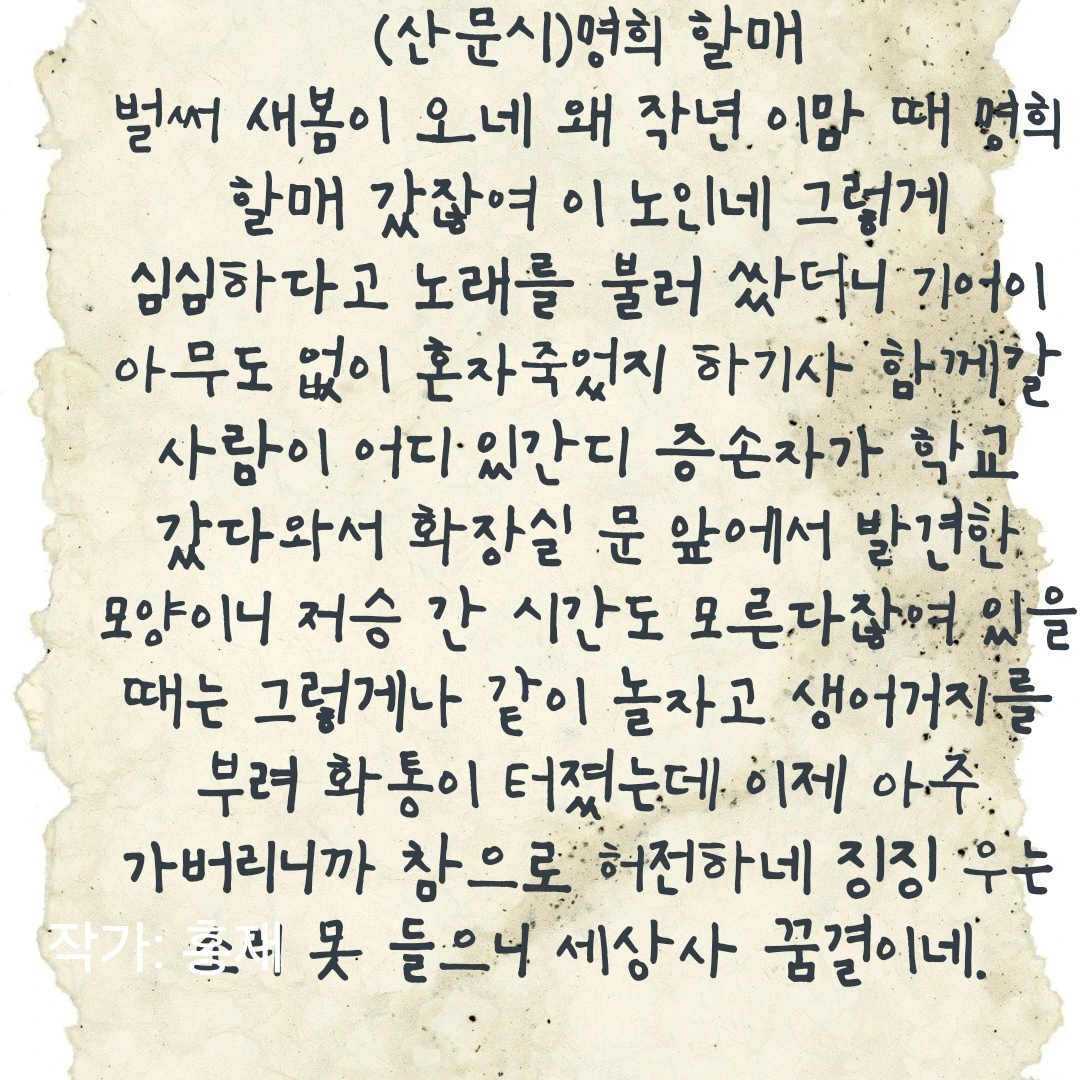 (산문시)명희 할매
벌써 새봄이 오네 왜 작년 이맘 때 명희
할매 갔잖여 이 노인네 그렇게
심심하다고 노래를 불러 쌌더니 기어이
아무도 없이 혼자죽었지 하기사 함께갈
사람이 어디 있간디 증손자가 학교
갔다와서 화장실 문 앞에서 발견한
모양이니 저승 간 시간도 모른다잖여 있을
때는 그렇게나 같이 놀자고 생어거지를
부려 화통이 터졌는데 이제 아주
가버리니까 참으로 허전하네 징징 우는
소리 못 들으니 세상사 꿈결이네.
작가: 홍재